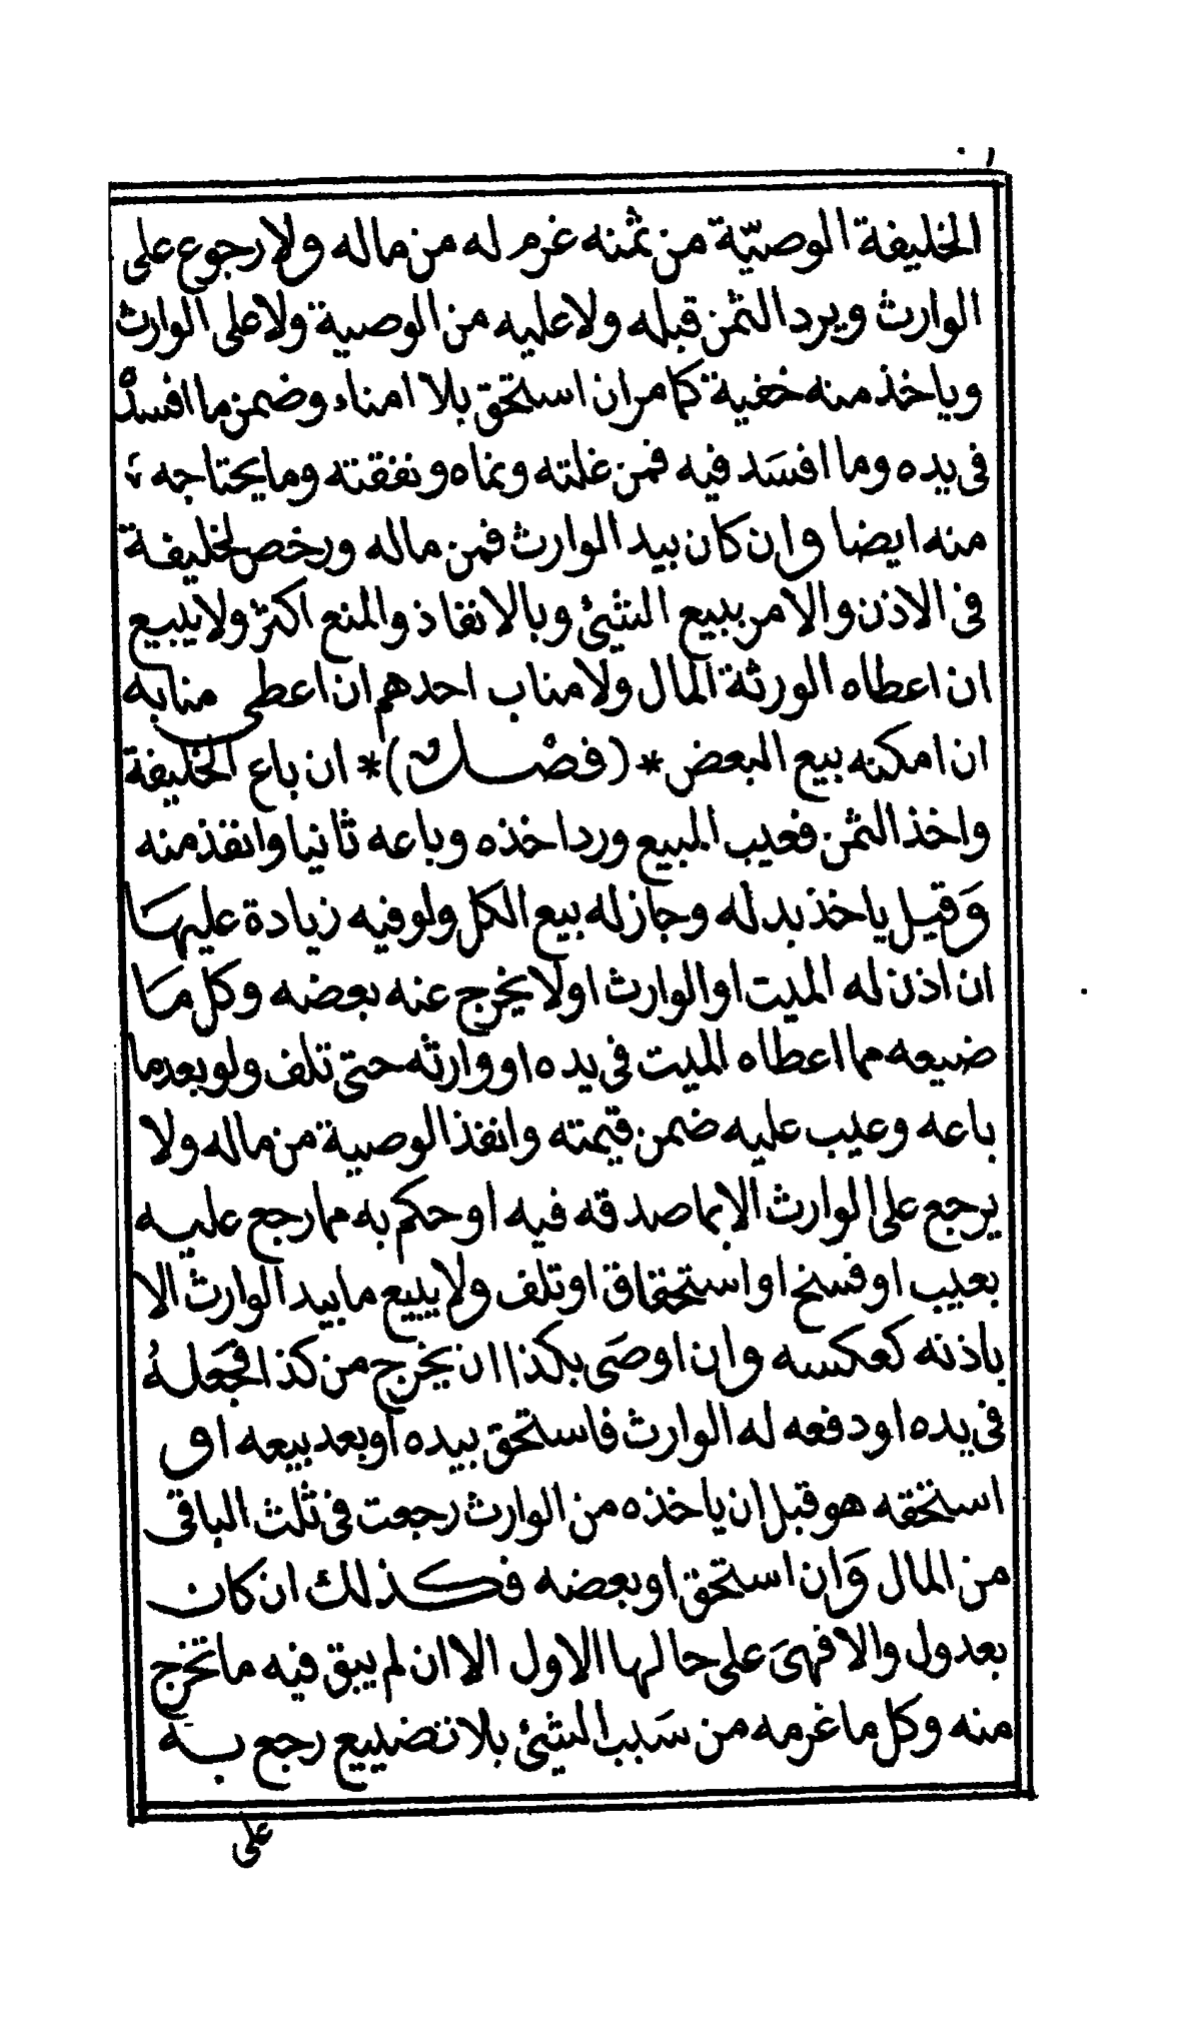 الخليفة الوصيّة من ثمنه غرم له من ماله ولا رجوع على
الوارث ويرد الثمن قبله ولا عليه من الوصية ولا على الوارث
وياخذ منه خفية كمامر ان استحق بلا امناء وضمن ما افسد
فى يده وما افسد فيه فمن غلته ونماه ونفقته وما يحتاج به
منه ايضا وان كان بيد الوارث فمن ماله ورخص لخليفة
فى الاذن والامر ببيع الشئ وبالانفاذ والمنع اكثر ولا يبيع
ان اعطاه الورثة المال ولا مناب احدهم ان اعطى منابه
ان امكنه بيع البعض * (فصل) * ان باع الخليفة
واخذ الثمن فعيب المبيع ورد اخذه وباعه ثانيا وانفذ منه
وَقيل ياخذ بدله وجاز له بيع الكل ولو فيه زيادة عليها
ان اذن له الميت او الوارث اولا يخرج عنه بعضه وكل مَا
ضيعه مما اعطاه الميت فى يده او وارثه حتى تلف ولو بعد ما
باعه وعيب عليه ضمن قيمته وانفذ الوصية من ماله ولا
يرجع على الوارث الا بما صدقه فيه او حكم به مما رجع عليه
بعيب او فسخ او استحقاق او تلف ولا يبيع ما بيد الوارث الا
باذنه كعكسه وان اوصَى بكذا ان يخرج من كذا فجَعلهُ
فى يده او دفعه له الوارث فاستحق بيده او بعد بيعه او
استحقه هو قبل ان ياخذه من الوارث رجعت فى ثلث الباقى
من المال وَان استحق او بعضه فكذلك ان كان
بعدول والا فهىَ على حالها الاول الا ان لم يبق فيه ما تخرج
منه وكل ما غرمه من سَبب الشئ بلا تضييع رجع به
على